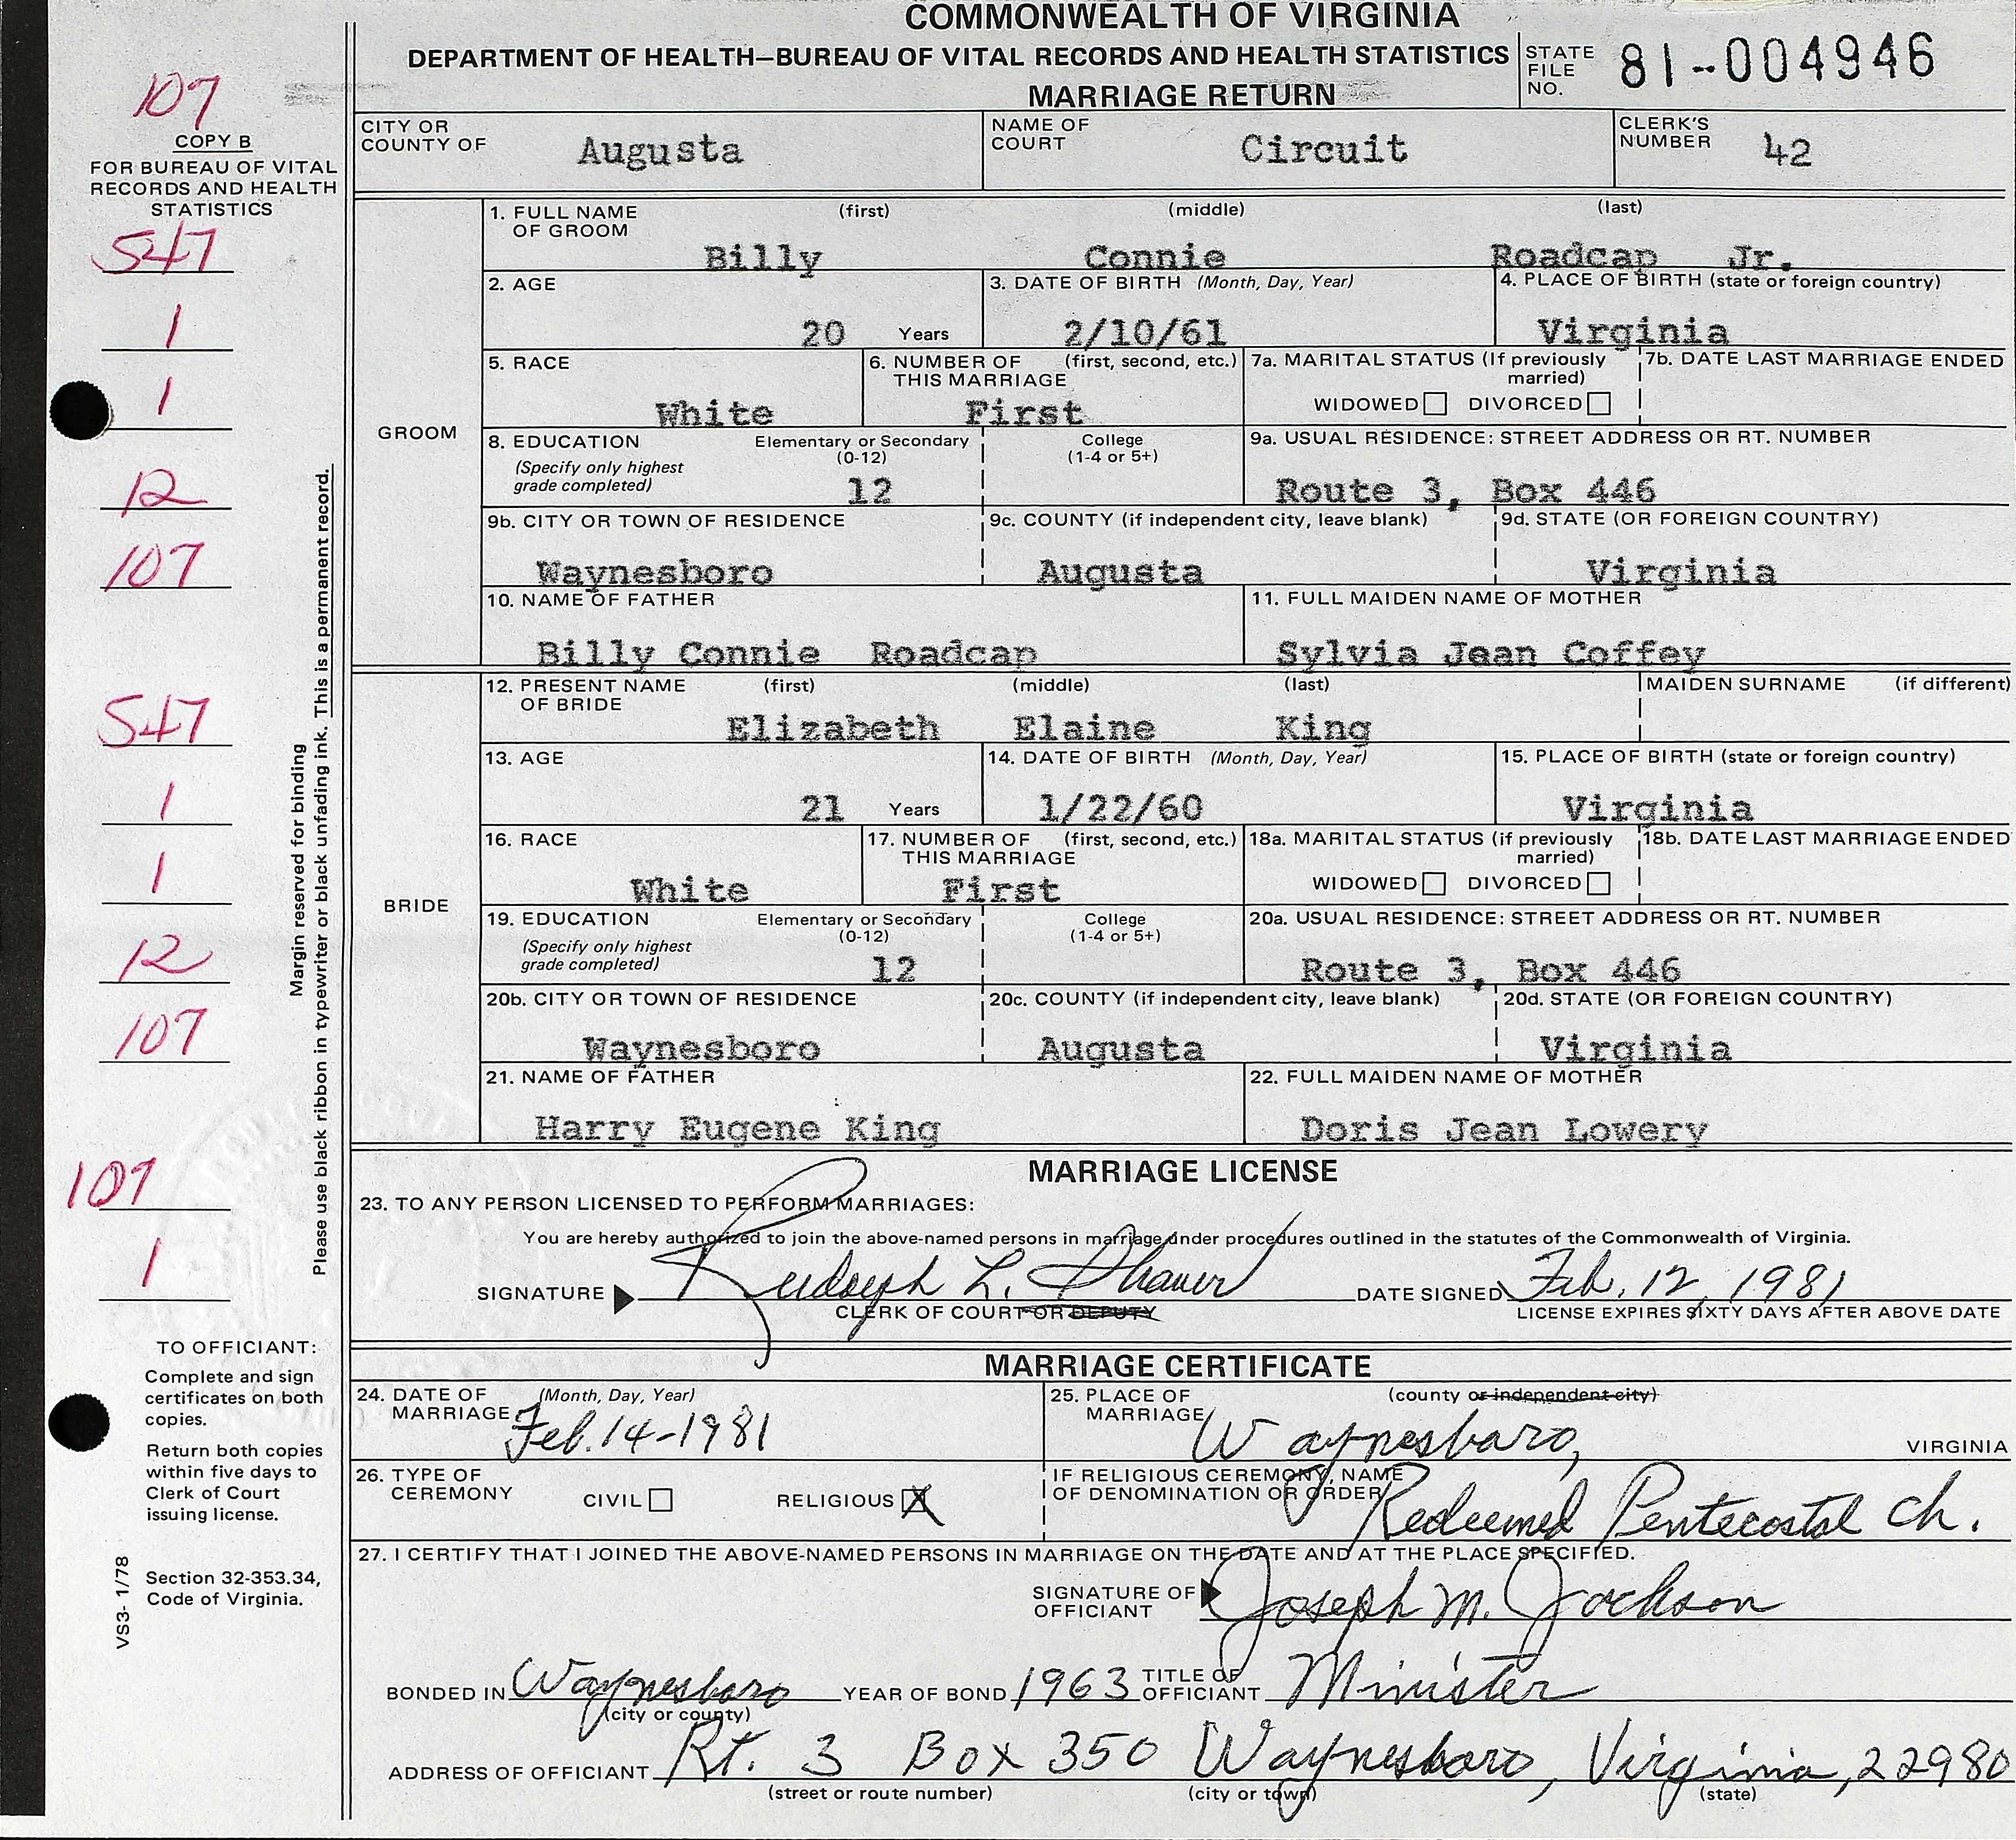 COMMONWEALTH OF VIRGINIA
DEPARTMENT OF HEALTH—BUREAU OF VITAL RECORDS AND HEALTH STATISTICS
MARRIAGE RETURN
STATE FILE NO. 81-004946
107
COPY B
FOR BUREAU OF VITAL
RECORDS AND HEALTH
STATISTICS
547
1
1
12
107
547
1
1
12
107
107
1
Margin reserved for binding
Please use black ribbon in typewriter or black unfading ink. This is a permanent record.
TO OFFICIANT:
Complete and sign
certificates on both
copies.
Return both copies
within five days to
Clerk of Court
issuing license.
Section 32-353.34,
Code of Virginia.
VS3- 1/78
CITY OR COUNTY OF Augusta
NAME OF COURT Circuit
CLERK'S NUMBER 42
GROOM
1. FULL NAME OF GROOM (first) (middle) (last)
Billy Connie Roadcap Jr.
2. AGE 20 Years
3. DATE OF BIRTH (Month, Day, Year) 2/10/61
4. PLACE OF BIRTH (state or foreign country) Virginia
5. RACE White
6. NUMBER OF THIS MARRIAGE (first, second, etc.) First
7a. MARITAL STATUS (If previously married) WIDOWED DIVORCED
7b. DATE LAST MARRIAGE ENDED
8. EDUCATION (Specify only highest grade completed) Elementary or Secondary (0-12) 12 College (1-4 or 5+)
9a. USUAL RESIDENCE: STREET ADDRESS OR RT. NUMBER Route 3, Box 446
9b. CITY OR TOWN OF RESIDENCE Waynesboro
9c. COUNTY (if independent city, leave blank) Augusta
9d. STATE (OR FOREIGN COUNTRY) Virginia
10. NAME OF FATHER Billy Connie Roadcap
11. FULL MAIDEN NAME OF MOTHER Sylvia Jean Coffey
BRIDE
12. PRESENT NAME OF BRIDE (first) (middle) (last) MAIDEN SURNAME (if different)
Elizabeth Elaine King
13. AGE 21 Years
14. DATE OF BIRTH (Month, Day, Year) 1/22/60
15. PLACE OF BIRTH (state or foreign country) Virginia
16. RACE White
17. NUMBER OF THIS MARRIAGE (first, second, etc.) First
18a. MARITAL STATUS (if previously married) WIDOWED DIVORCED
18b. DATE LAST MARRIAGE ENDED
19. EDUCATION (Specify only highest grade completed) Elementary or Secondary (0-12) 12 College (1-4 or 5+)
20a. USUAL RESIDENCE: STREET ADDRESS OR RT. NUMBER Route 3, Box 446
20b. CITY OR TOWN OF RESIDENCE Waynesboro
20c. COUNTY (if independent city, leave blank) Augusta
20d. STATE (OR FOREIGN COUNTRY) Virginia
21. NAME OF FATHER Harry Eugene King
22. FULL MAIDEN NAME OF MOTHER Doris Jean Lowery
MARRIAGE LICENSE
23. TO ANY PERSON LICENSED TO PERFORM MARRIAGES:
You are hereby authorized to join the above-named persons in marriage under procedures outlined in the statutes of the Commonwealth of Virginia.
SIGNATURE Rudolph L. Shaver DATE SIGNED Feb. 12, 1981
CLERK OF COURT OR DEPUTY LICENSE EXPIRES SIXTY DAYS AFTER ABOVE DATE
MARRIAGE CERTIFICATE
24. DATE OF MARRIAGE (Month, Day, Year) Feb. 14-1981
25. PLACE OF MARRIAGE (county or independent city) Waynesboro, VIRGINIA
26. TYPE OF CEREMONY CIVIL RELIGIOUS X
IF RELIGIOUS CEREMONY, NAME OF DENOMINATION OR ORDER Redeemed Pentecostal Ch.
27. I CERTIFY THAT I JOINED THE ABOVE-NAMED PERSONS IN MARRIAGE ON THE DATE AND AT THE PLACE SPECIFIED.
SIGNATURE OF OFFICIANT Joseph M. Jackson
BONDED IN Waynesboro YEAR OF BOND 1963 TITLE OF OFFICIANT Minister
(city or county)
ADDRESS OF OFFICIANT Rt. 3 Box 350 Waynesboro, Virginia, 22980
(street or route number) (city or town) (state)